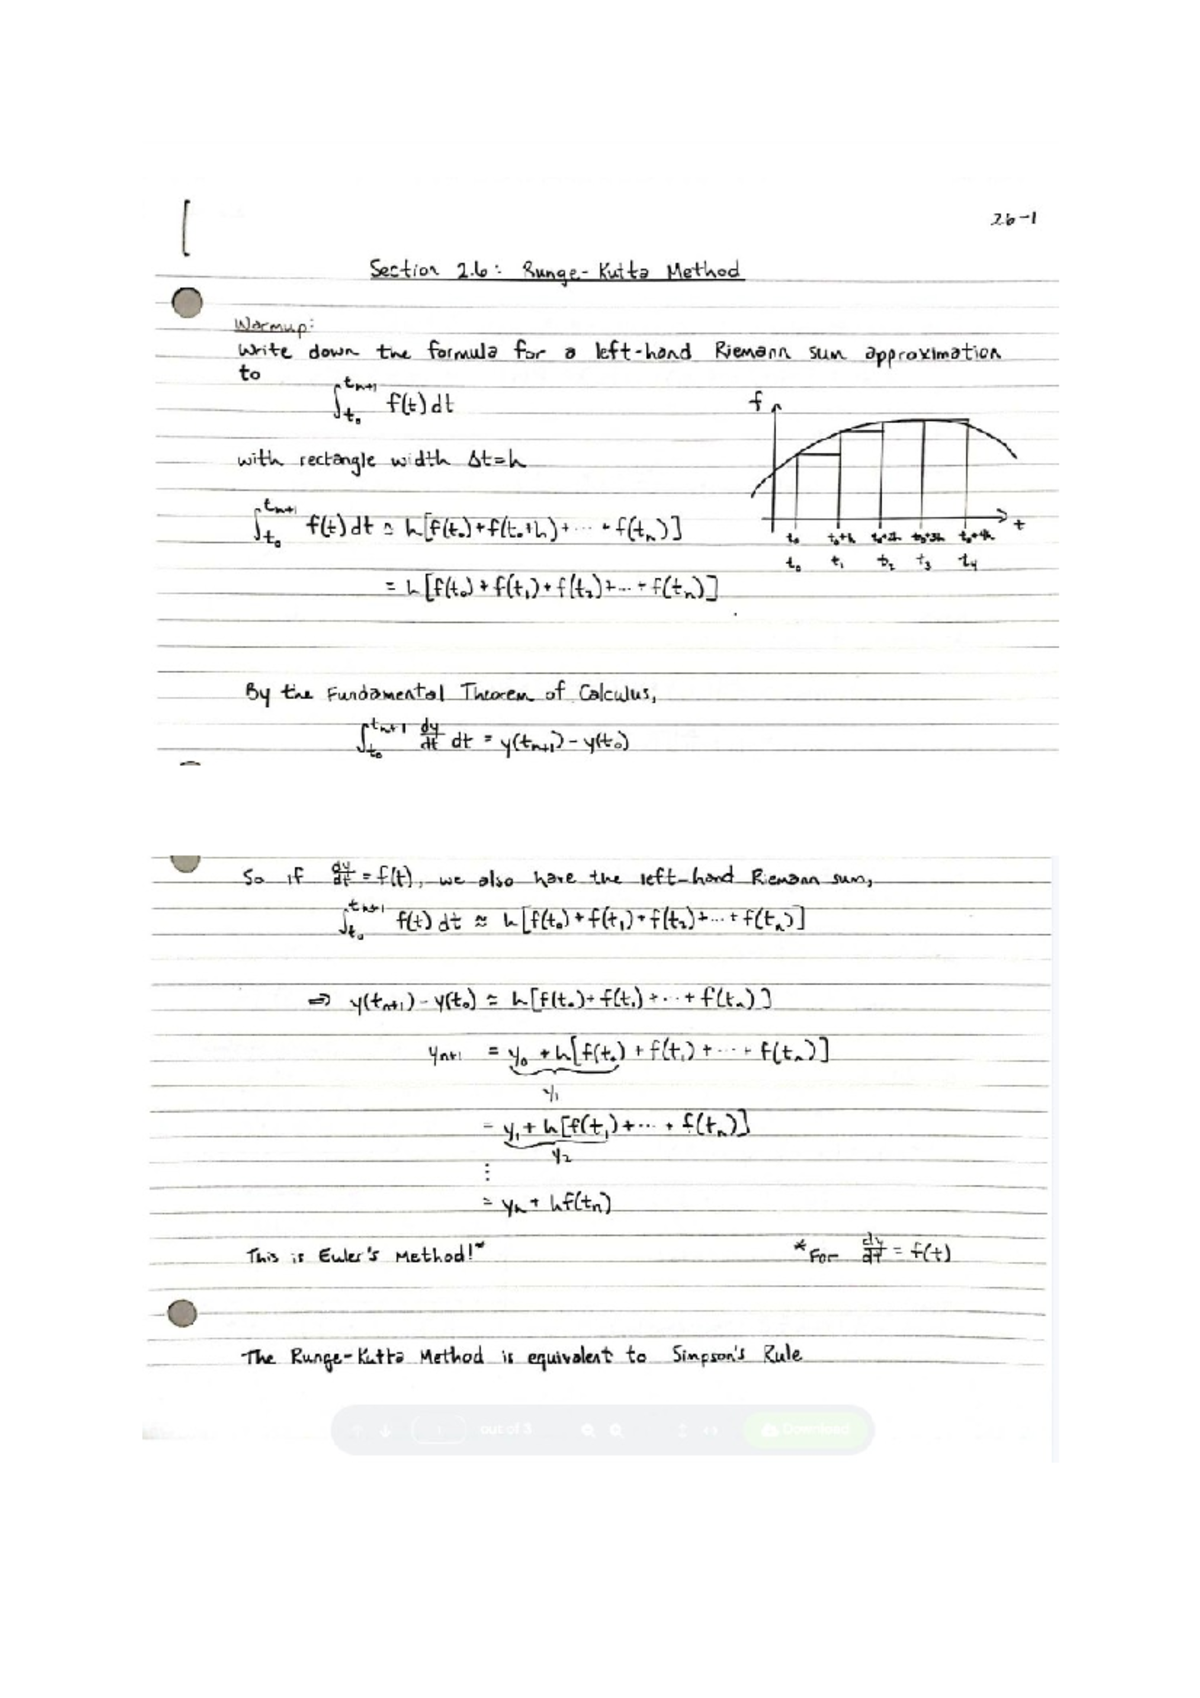 26-1
Section 2.6: Runge-Kutta Method
Warmup:
Write down the formula for a left-hand Riemann sum approximation
to
∫_{t₀}^{tₙ₊₁} f(t) dt
f
with rectangle width Δt=h
∫_{t₀}^{tₙ₊₁} f(t) dt ≈ h[f(t₀)+f(t₀+h)+ ··· + f(tₙ)]
t
t₀ t₀+h t₀+2h t₀+3h t₀+4h
t₀ t₁ t₂ t₃ t₄
= h[f(t₀)+f(t₁)+f(t₂)+...+f(tₙ)]
By the Fundamental Theorem of Calculus,
∫_{t₀}^{tₙ₊₁} dy/dt dt = y(tₙ₊₁)-y(t₀)
So if dy/dt = f(t), we also have the left-hand Riemann sum,
∫_{t₀}^{tₙ₊₁} f(t) dt ≈ h[f(t₀)+f(t₁)+f(t₂)+...+f(tₙ)]
⇒ y(tₙ₊₁)-y(t₀) ≈ h[f(t₀)+f(t₁)+···+f(tₙ)]
yₙ₊₁ = y₀ + h[f(t₀) + f(t₁) + ··· + f(tₙ)]
y₁
= y₁ + h[f(t₁)+ ··· + f(tₙ)]
y₂
⋮
= yₙ + hf(tₙ)
This is Euler's Method!* *For dy/dt = f(t)
The Runge-Kutta Method is equivalent to Simpson's Rule
1 out of 3 Download